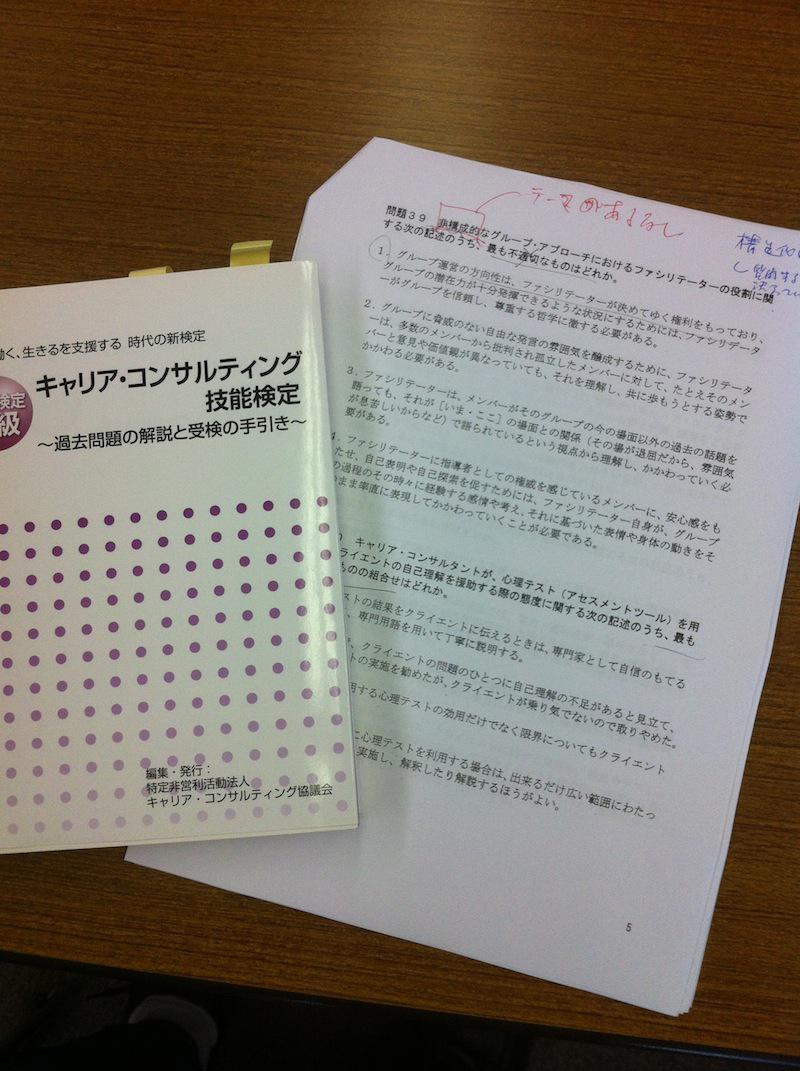 働く、生きるを支援する 時代の新検定
検定
級
キャリア・コンサルティング
技能検定
～過去問題の解説と受検の手引き～
編集・発行：
特定非営利活動法人
キャリア・コンサルティング協議会
テーマがあるなし
問題３９　非構成的なグループ・アプローチにおけるファシリテーターの役割に関
する次の記述のうち、最も不適切なものはどれか。
１．グループ運営の方向性は、ファシリテーターが決めてゆく権利をもっており、
グループの潜在力が十分発揮できるような状況にするためには、ファシリテータ
ーがグループを信頼し、尊重する哲学に徹する必要がある。
２．グループに脅威のない自由な発言の雰囲気を醸成するために、ファシリテータ
ーは、多数のメンバーから批判され孤立したメンバーに対して、たとえそのメン
バーと意見や価値観が異なっていても、それを理解し、共に歩もうとする姿勢で
かかわる必要がある。
３．ファシリテーターは、メンバーがそのグループの今の場面以外の過去の話題を
語っても、それが［いま・ここ］の場面との関係（その場が退屈だから、雰囲気
が息苦しいからなど）で語られているという視点から理解し、かかわっていく必
要がある。
４．ファシリテーターに指導者としての権威を感じているメンバーに、安心感をも
たせ、自己表明や自己探索を促すためには、ファシリテーター自身が、グループ
の過程のその時々に経験する感情や考え、それに基づいた表情や身体の動きをそ
のまま率直に表現してかかわっていくことが必要である。
０　キャリア・コンサルタントが、心理テスト（アセスメントツール）を用
ライエントの自己理解を援助する際の態度に関する次の記述のうち、最も
ものの組合せはどれか。
ストの結果をクライエントに伝えるときは、専門家として自信のもてる
、専門用語を用いて丁寧に説明する。
、クライエントの問題のひとつに自己理解の不足があると見立て、
トの実施を勧めたが、クライエントが乗り気でないので取りやめた。
用する心理テストの効用だけでなく限界についてもクライエント
に心理テストを利用する場合は、出来るだけ広い範囲にわたっ
実施し、解釈したり解説するほうがよい。
5